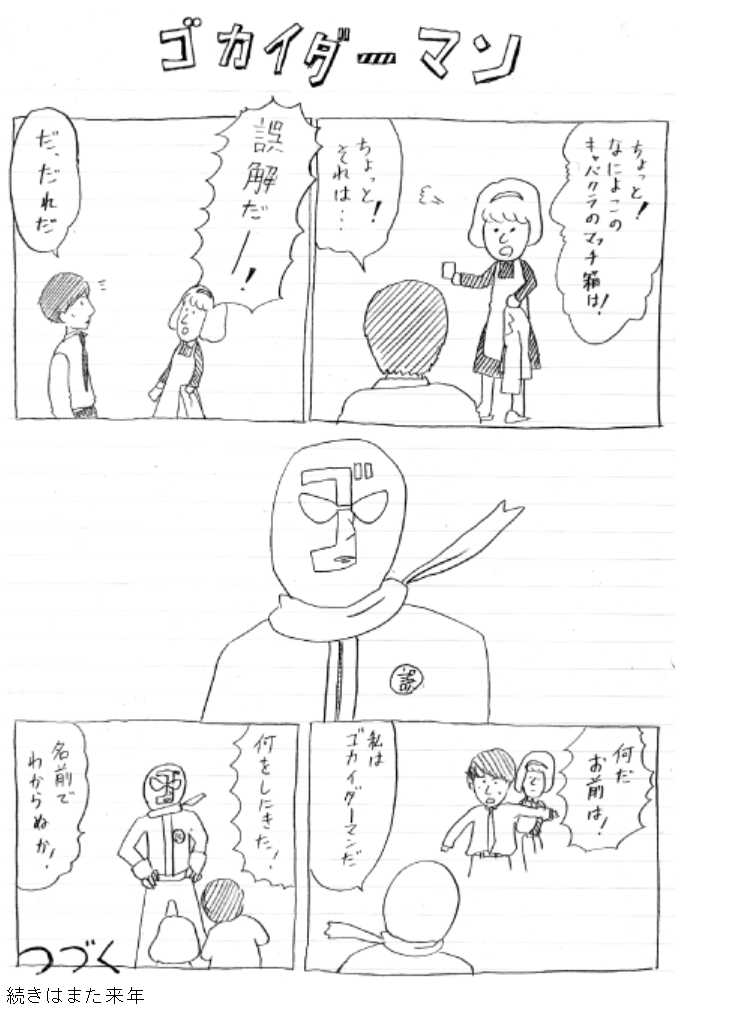 ゴカイダーマン
ちょっと!
なによこの
キャバクラのマッチ箱は!
ちょっと!
それは…
誤解だー!
だ、だれだ
ゴ
誤
何だ
お前は!
私は
ゴカイダーマンだ
何をしにきた!
名前で
わからぬか!
ゴ
つづく
続きはまた来年